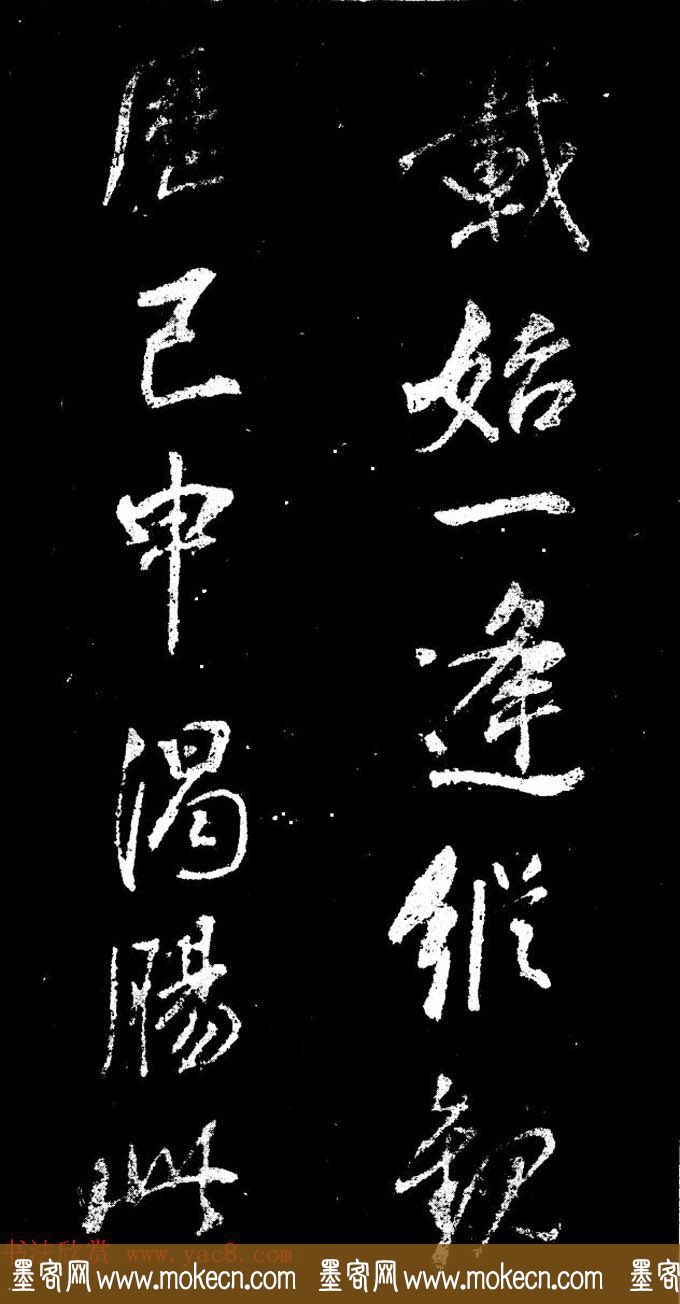 載始一逢縱觀
歷己申渴腸此
书法欣赏 www.yac8.com
墨客网 www.mokecn.com 墨客网 www.mokecn.com 墨客网